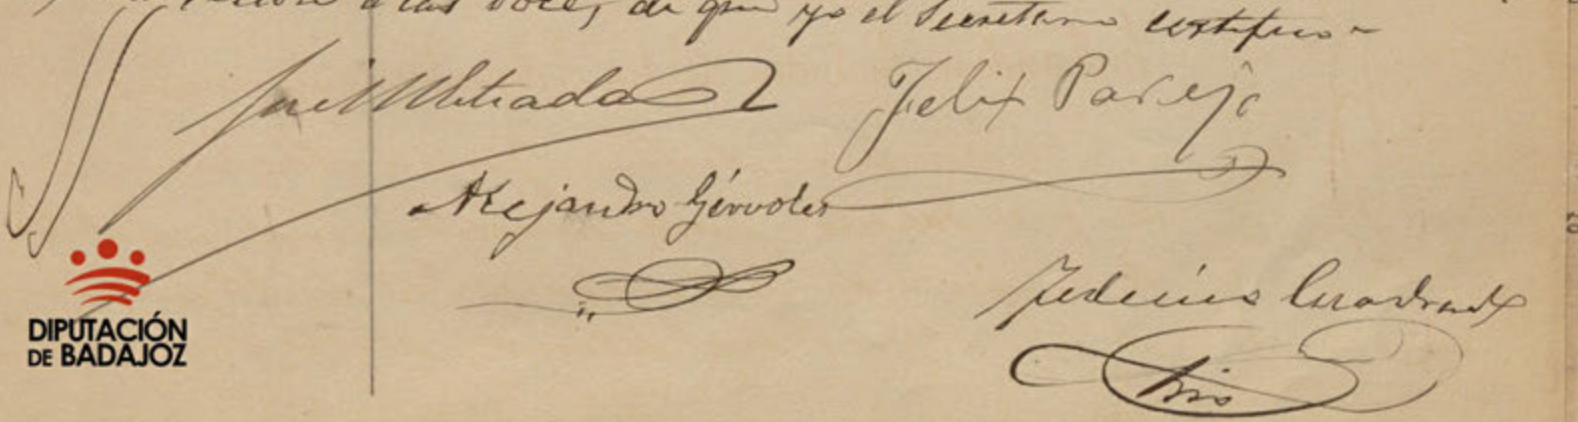 sesión a las doce, de que yo el Secretario certifico
José M Estrada Felix Parejo
Alejandro Gérvoles
Federico Cuadrado
Srio
DIPUTACIÓN
DE BADAJOZ